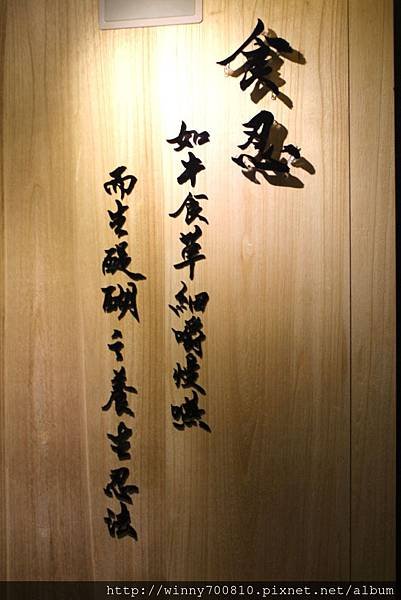 食忍
如牛食草細嚼慢哄
而生醍醐之養生忍法
http://winny700810.pixnet.net/album